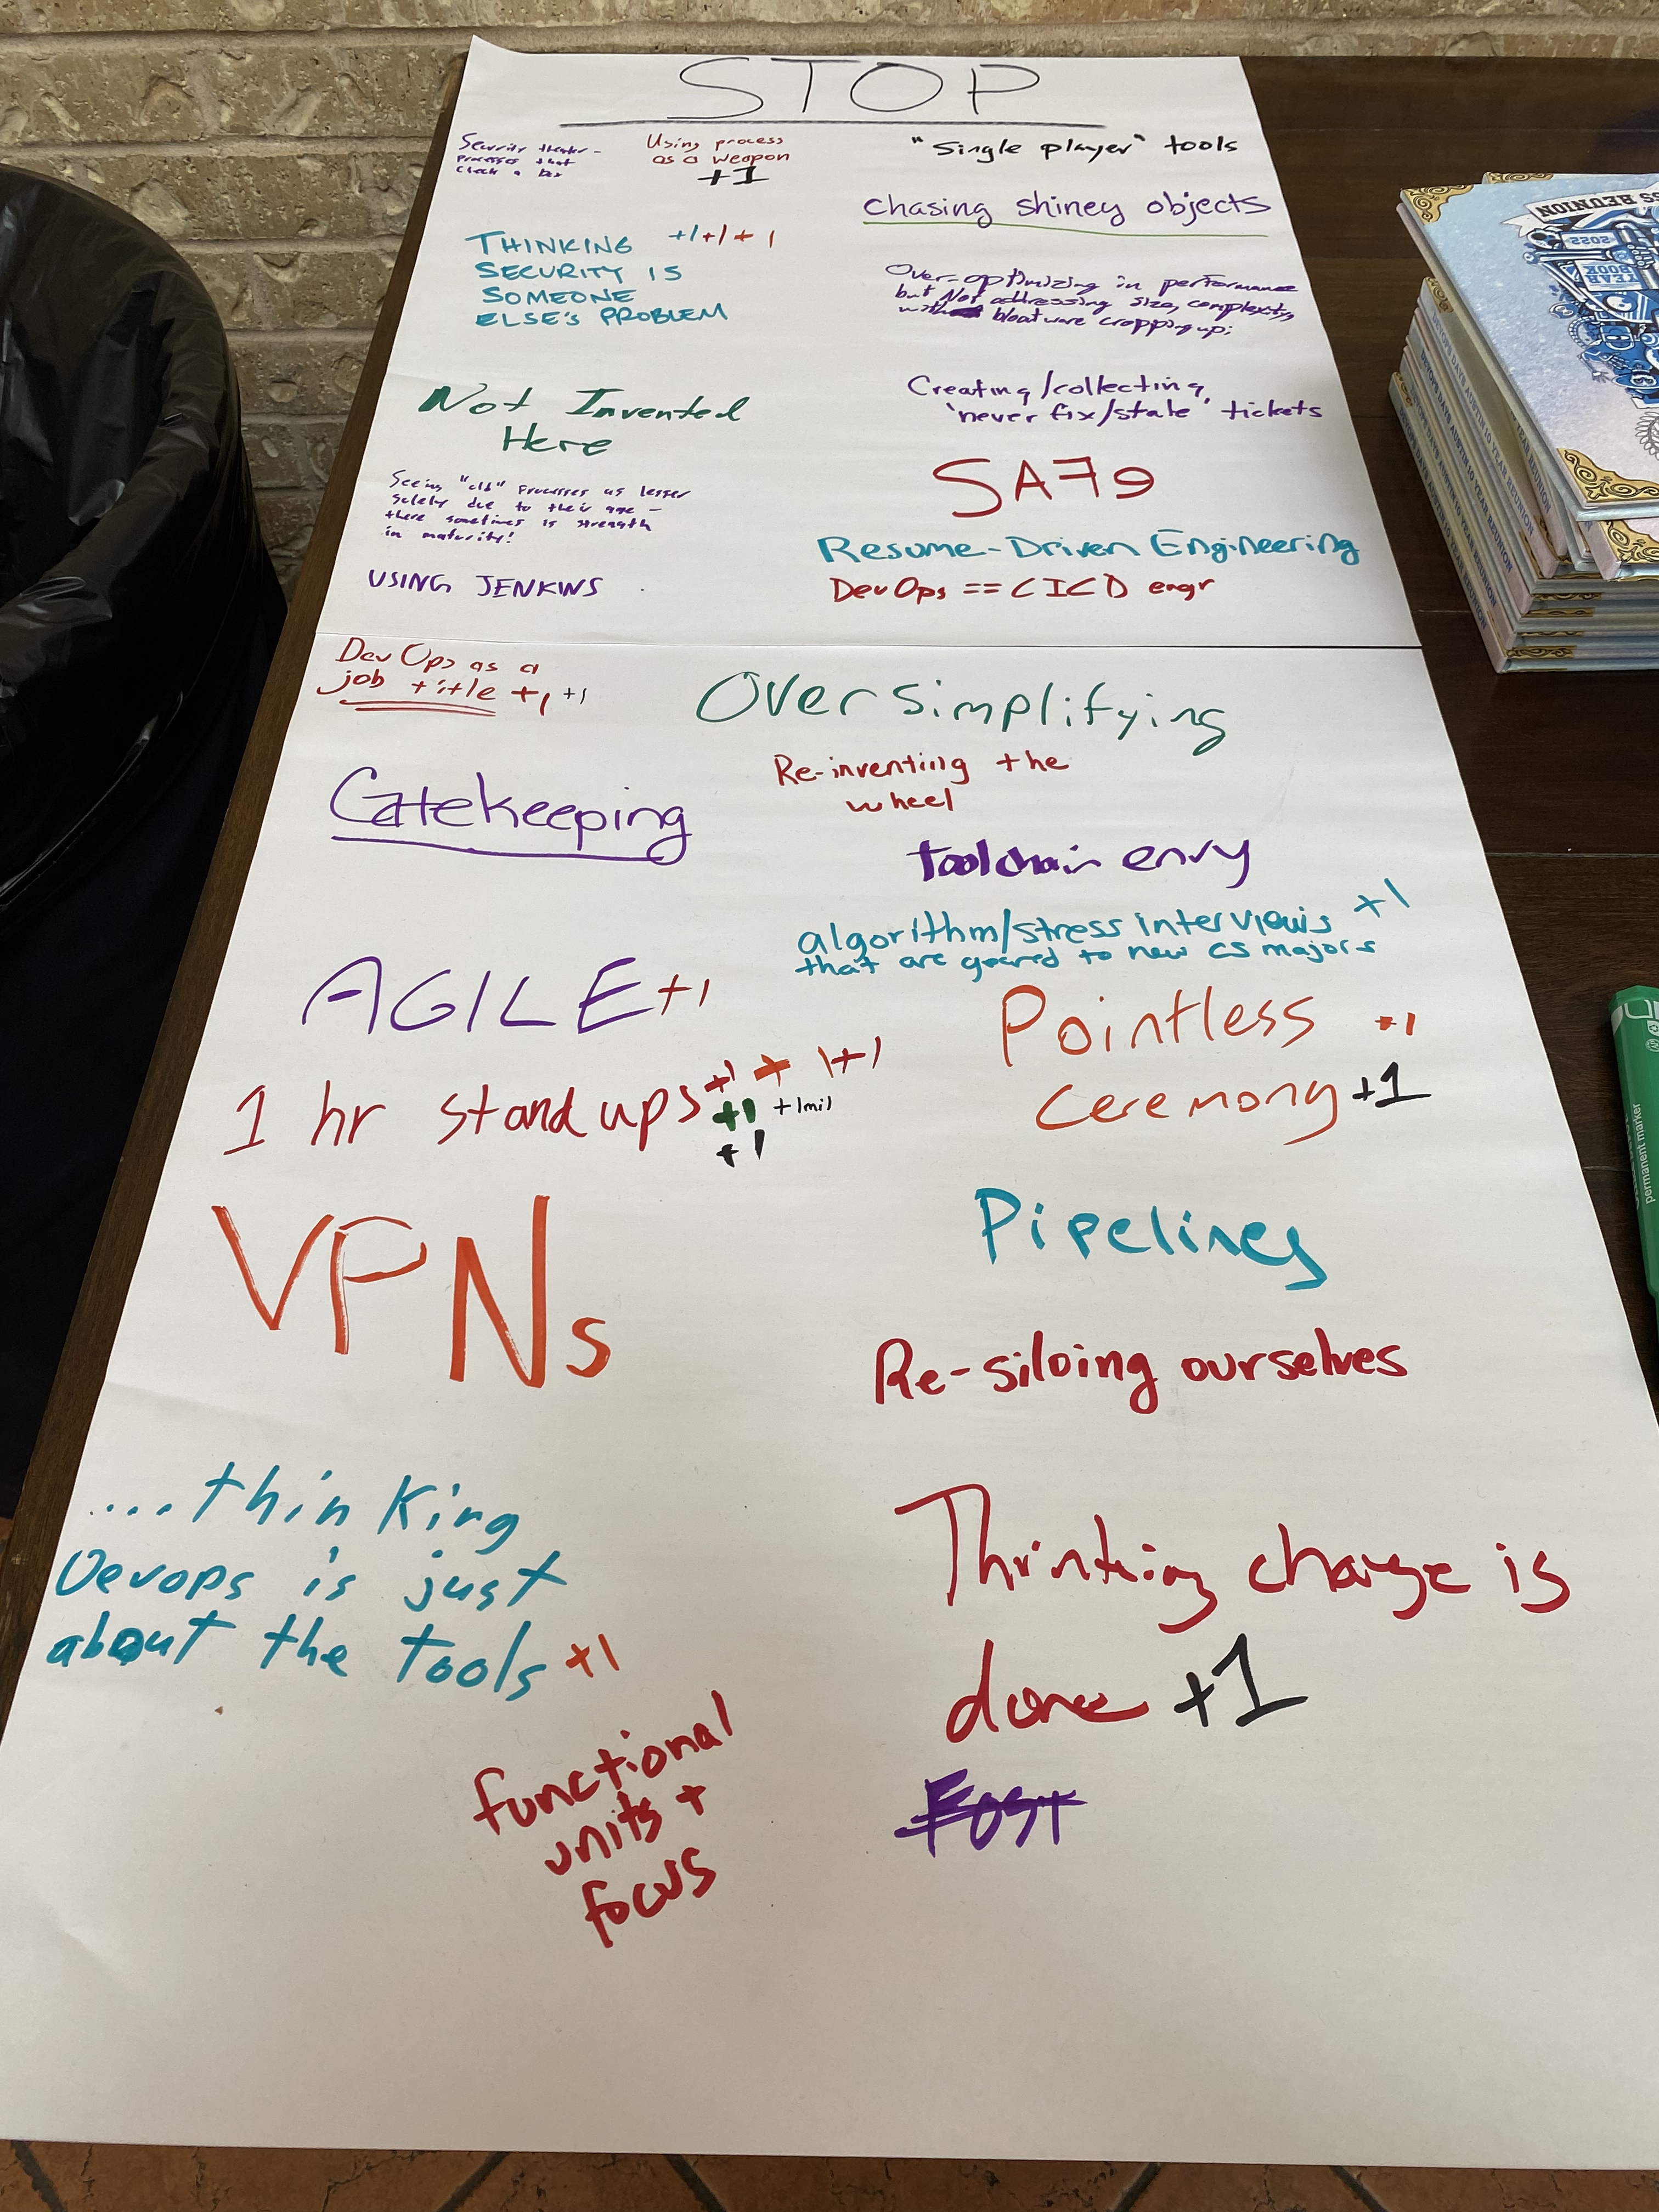 STOP
Security theater -
processes that
check a box
Using process
as a weapon
+1
"Single player" tools
chasing shiney objects
THINKING +1+1+1
SECURITY IS
SOMEONE
ELSE'S PROBLEM
Over-optimizing in performance
but Not addressing size, complexity,
with bloatware cropping up;
Not Invented
Here
Creating/collecting,
'never fix/stale' tickets
Seeing "old" processes as lesser
solely due to their age -
there sometimes is strength
in maturity!
SA79
Resume-Driven Engineering
USING JENKINS
DevOps == CICD engr
DevOps as a
job title +1 +1
Over simplifying
Re-inventing the
wheel
Gatekeeping
toolchain envy
algorithm/stress interviews +1
that are geared to new CS majors
AGILE +1
Pointless +1
ceremony +1
1 hr stand ups +1 + 1+1
+1 +1mil
+1
VPNs
Pipelines
Re-siloing ourselves
....thinking
Devops is just
about the tools +1
Thinking change is
done +1
functional
units +
focus
YEAR
BOOK
2022
SS REUNION
DEVOPS DAYS AUSTIN 10 YEAR REUNION
permanent marker